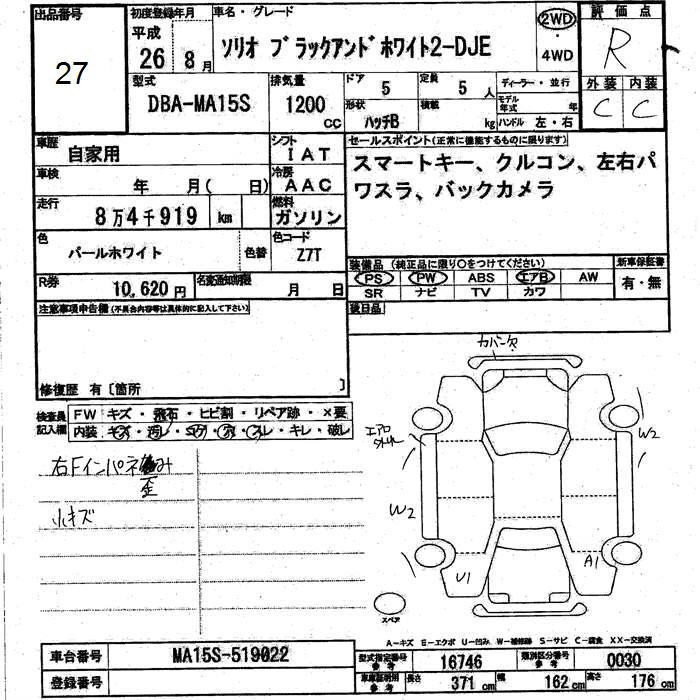 出品番号 初度登録年月 車名・グレード 2WD 評価点
27 平成 26 8月 ソリオ ブラックアンドホワイト2-DJE 4WD R
型式 排気量 ドア 5 定員 5人 ディーラー・並行 外装 内装
DBA-MA15S 1200 cc 形状 ハッチB 積載 kg モデル年式 年 C C
ハンドル 左・右
車歴 自家用 シフト IAT セールスポイント(正常に機能するものに限ります)
車検 年 月( 日) 冷房 AAC スマートキー、クルコン、左右パ
ワスラ、バックカメラ
走行 8万4千919 km 燃料 ガソリン
色 パールホワイト 色替 色コード Z7T
装備品(純正品に限り○をつけてください) 新車保証書
PS PW ABS エアB AW 有・無
SR ナビ TV カワ
R券 10,620円 名変通知期限 月 日
後日品
注意事項申告欄(不具合内容等は具体的に記入して下さい)
修復歴 有〔箇所 〕
検査員記入欄 FW キズ・飛石・ヒビ割・リペア跡・×要
内装 キズ・汚レ・コゲ・穴・スレ・キレ・破レ
右Fインパネ
歪
小キズ
カバン欠
エアロ
W2
W2
U1
A1
スペア
A-キズ E-エクボ U-凹み W-補修跡 S-サビ C-腐食 XX-交換済
車台番号 MA15S-519022
登録番号
型式指定番号 参考 16746 類別区分番号 参考 0030
車庫証明用 参考 長さ 371 cm 幅 162 cm 高さ 176 cm